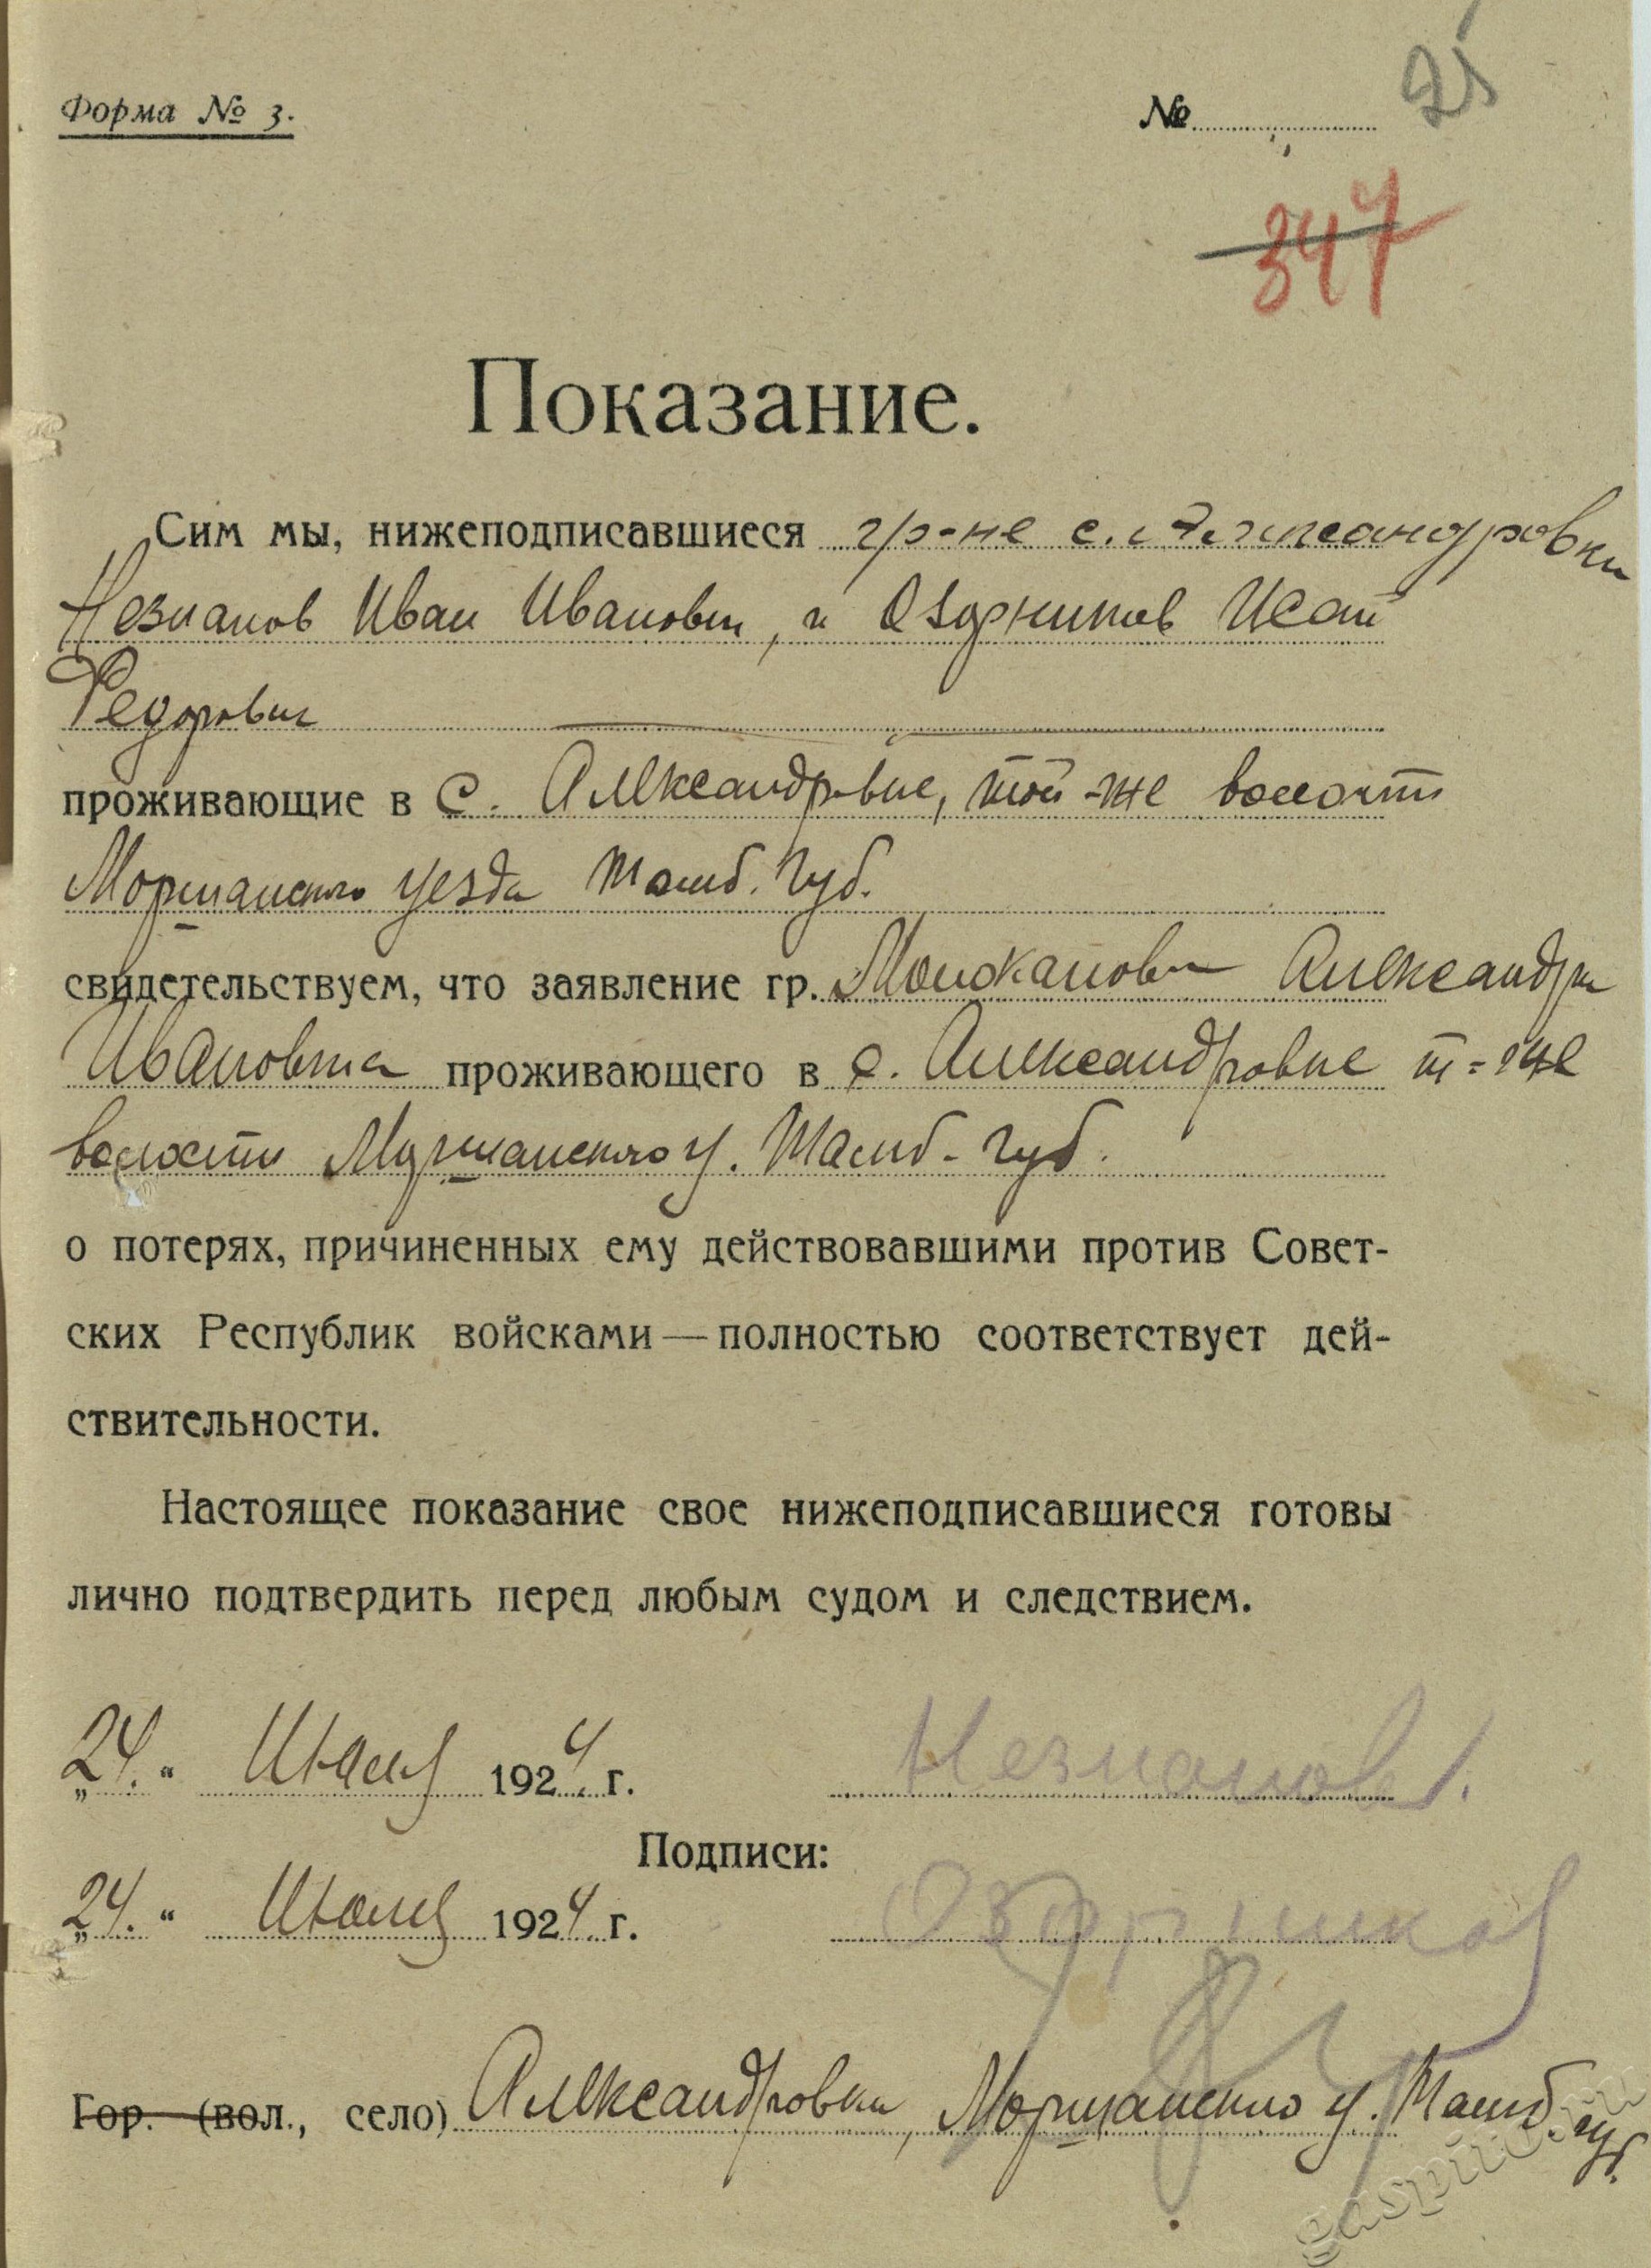 Форма № 3.
№ 25
347
Показание.
Сим мы, нижеподписавшиеся гр-не с. Александровки
Незнанов Иван Иванович, и Озарников Исай
Федорович
проживающие в с. Александровке, той-же волости
Моршанского уезда Тамб. Губ.
свидетельствуем, что заявление гр. Александры
Ивановна проживающего в с. Александровке т-же
волости Моршанского у. Тамб. губ.
о потерях, причиненных ему действовавшими против Совет-
ских Республик войсками — полностью соответствует дей-
ствительности.
Настоящее показание свое нижеподписавшиеся готовы
лично подтвердить перед любым судом и следствием.
„24.“ Июля 1924 г. Незнанов
Подписи:
„24.“ Июля 1924 г.
Гор. (вол., село) Александровка, Моршанского у. Тамб. губ.
gaspito.ru